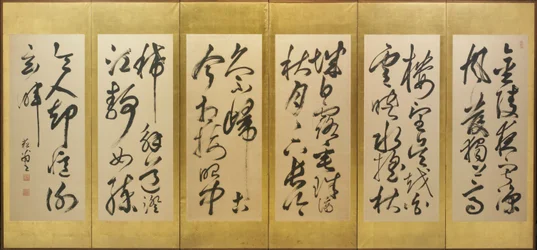 金陵夜寂涼
風發獨上高
樓望吳越白
雲映水搖秋
城白露垂珠滴
秋月々下長吟
久不歸古
今相接眼中
稀解道澄
江静如練
令人却憶謝
玄暉